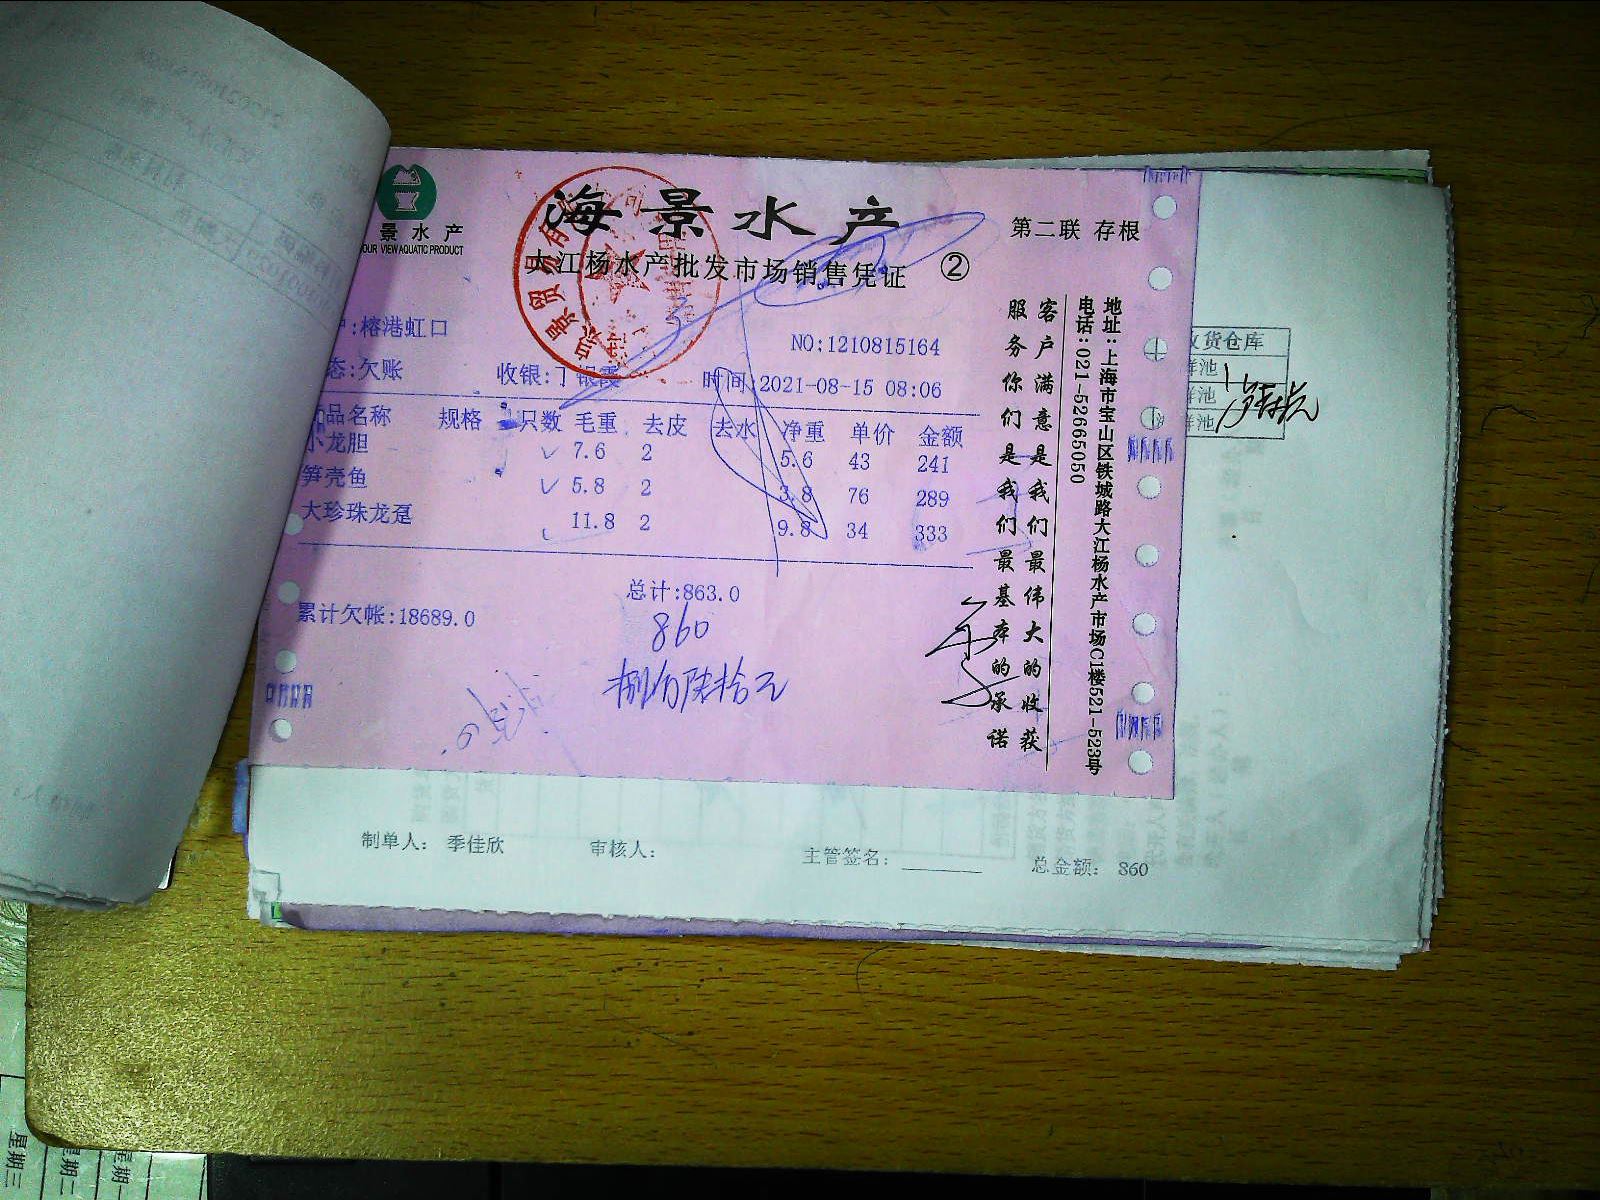 景水产
OUR VIEW AQUATIC PRODUCT
海景水产
大江杨水产批发市场销售凭证 ②
第二联 存根
:榕港虹口
NO:1210815164
态:欠账 收银:丁银霞 时间:2021-08-15 08:06
品名称 规格 只数 毛重 去皮 去水 净重 单价 金额
小龙胆 7.6 2 5.6 43 241
笋壳鱼 5.8 2 3.8 76 289
大珍珠龙趸 11.8 2 9.8 34 333
总计:863.0
累计欠帐:18689.0
860
捌佰陆拾元
客户满意是我们最伟大的收获
服务你们是我们最基本的承诺
地址:上海市宝山区铁城路大江杨水产市场C1楼521-523号
电话:021-52665050
收货仓库
鲜池
鲜池
鲜池
制单人: 季佳欣 审核人: 主管签名: 总金额: 860
星期三
星期二
星期一